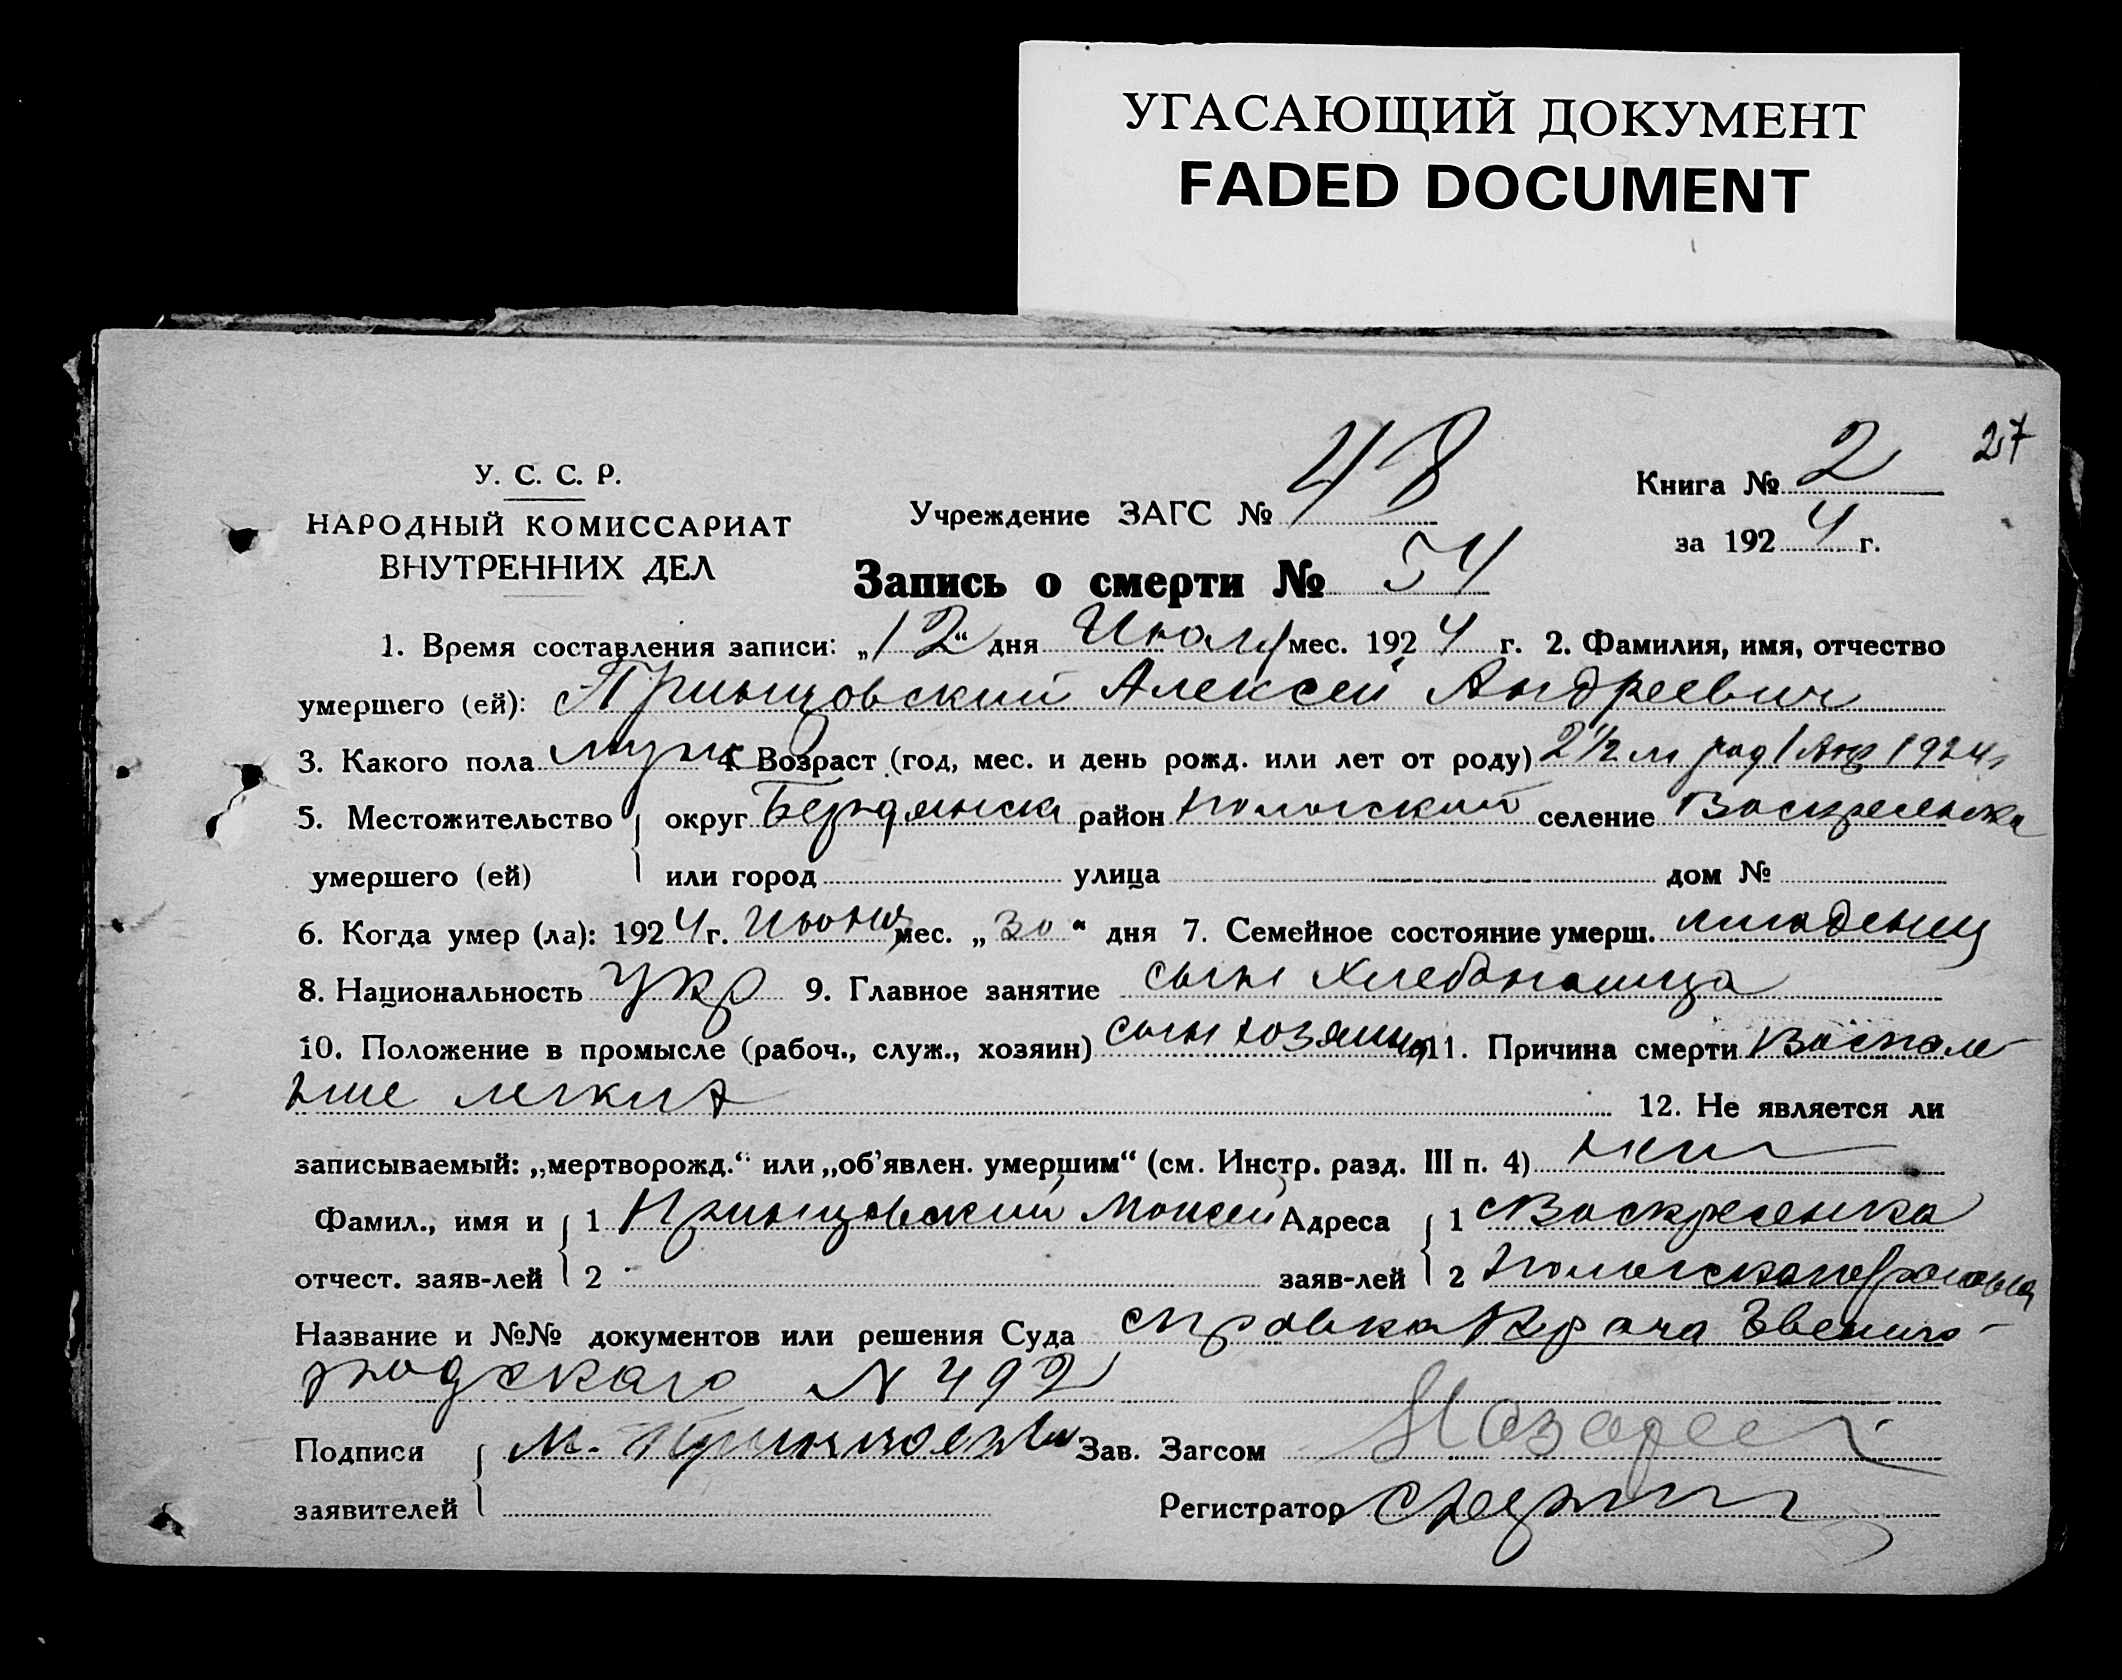 УГАСАЮЩИЙ ДОКУМЕНТ
FADED DOCUMENT
27
У. С. С. Р.
НАРОДНЫЙ КОМИССАРИАТ
ВНУТРЕННИХ ДЕЛ
Учреждение ЗАГС № 48
Книга № 2
за 1924 г.
Запись о смерти № 54
1. Время составления записи: „12“ дня Июля мес. 1924 г. 2. Фамилия, имя, отчество
умершего (ей): Принцовский Алексей Андреевич
3. Какого пола муж 4. Возраст (год, мес. и день рожд. или лет от роду) 2 1/2 м род 1 Апр 1924
5. Местожительство округ Бердянск район Пологский селение Воскресенка
умершего (ей) или город улица дом №
6. Когда умер (ла): 1924 г. Июня мес. „30“ дня 7. Семейное состояние умерш. младенец
8. Национальность укр 9. Главное занятие сын хлебопашца
10. Положение в промысле (рабоч., служ., хозяин) сын хозяина 11. Причина смерти Воспале-
ние легких 12. Не является ли
записываемый: „мертворожд.“ или „об’явлен. умершим“ (см. Инстр. разд. III п. 4) нет
Фамил., имя и 1 Принцовский Моисей Адреса 1 Воскресенка
отчест. заяв-лей 2 заяв-лей 2 Пологского района
Название и №№ документов или решения Суда справка Врача Звениго-
родского N 492
Подписи М. Принцовский Зав. Загсом
заявителей Регистратор